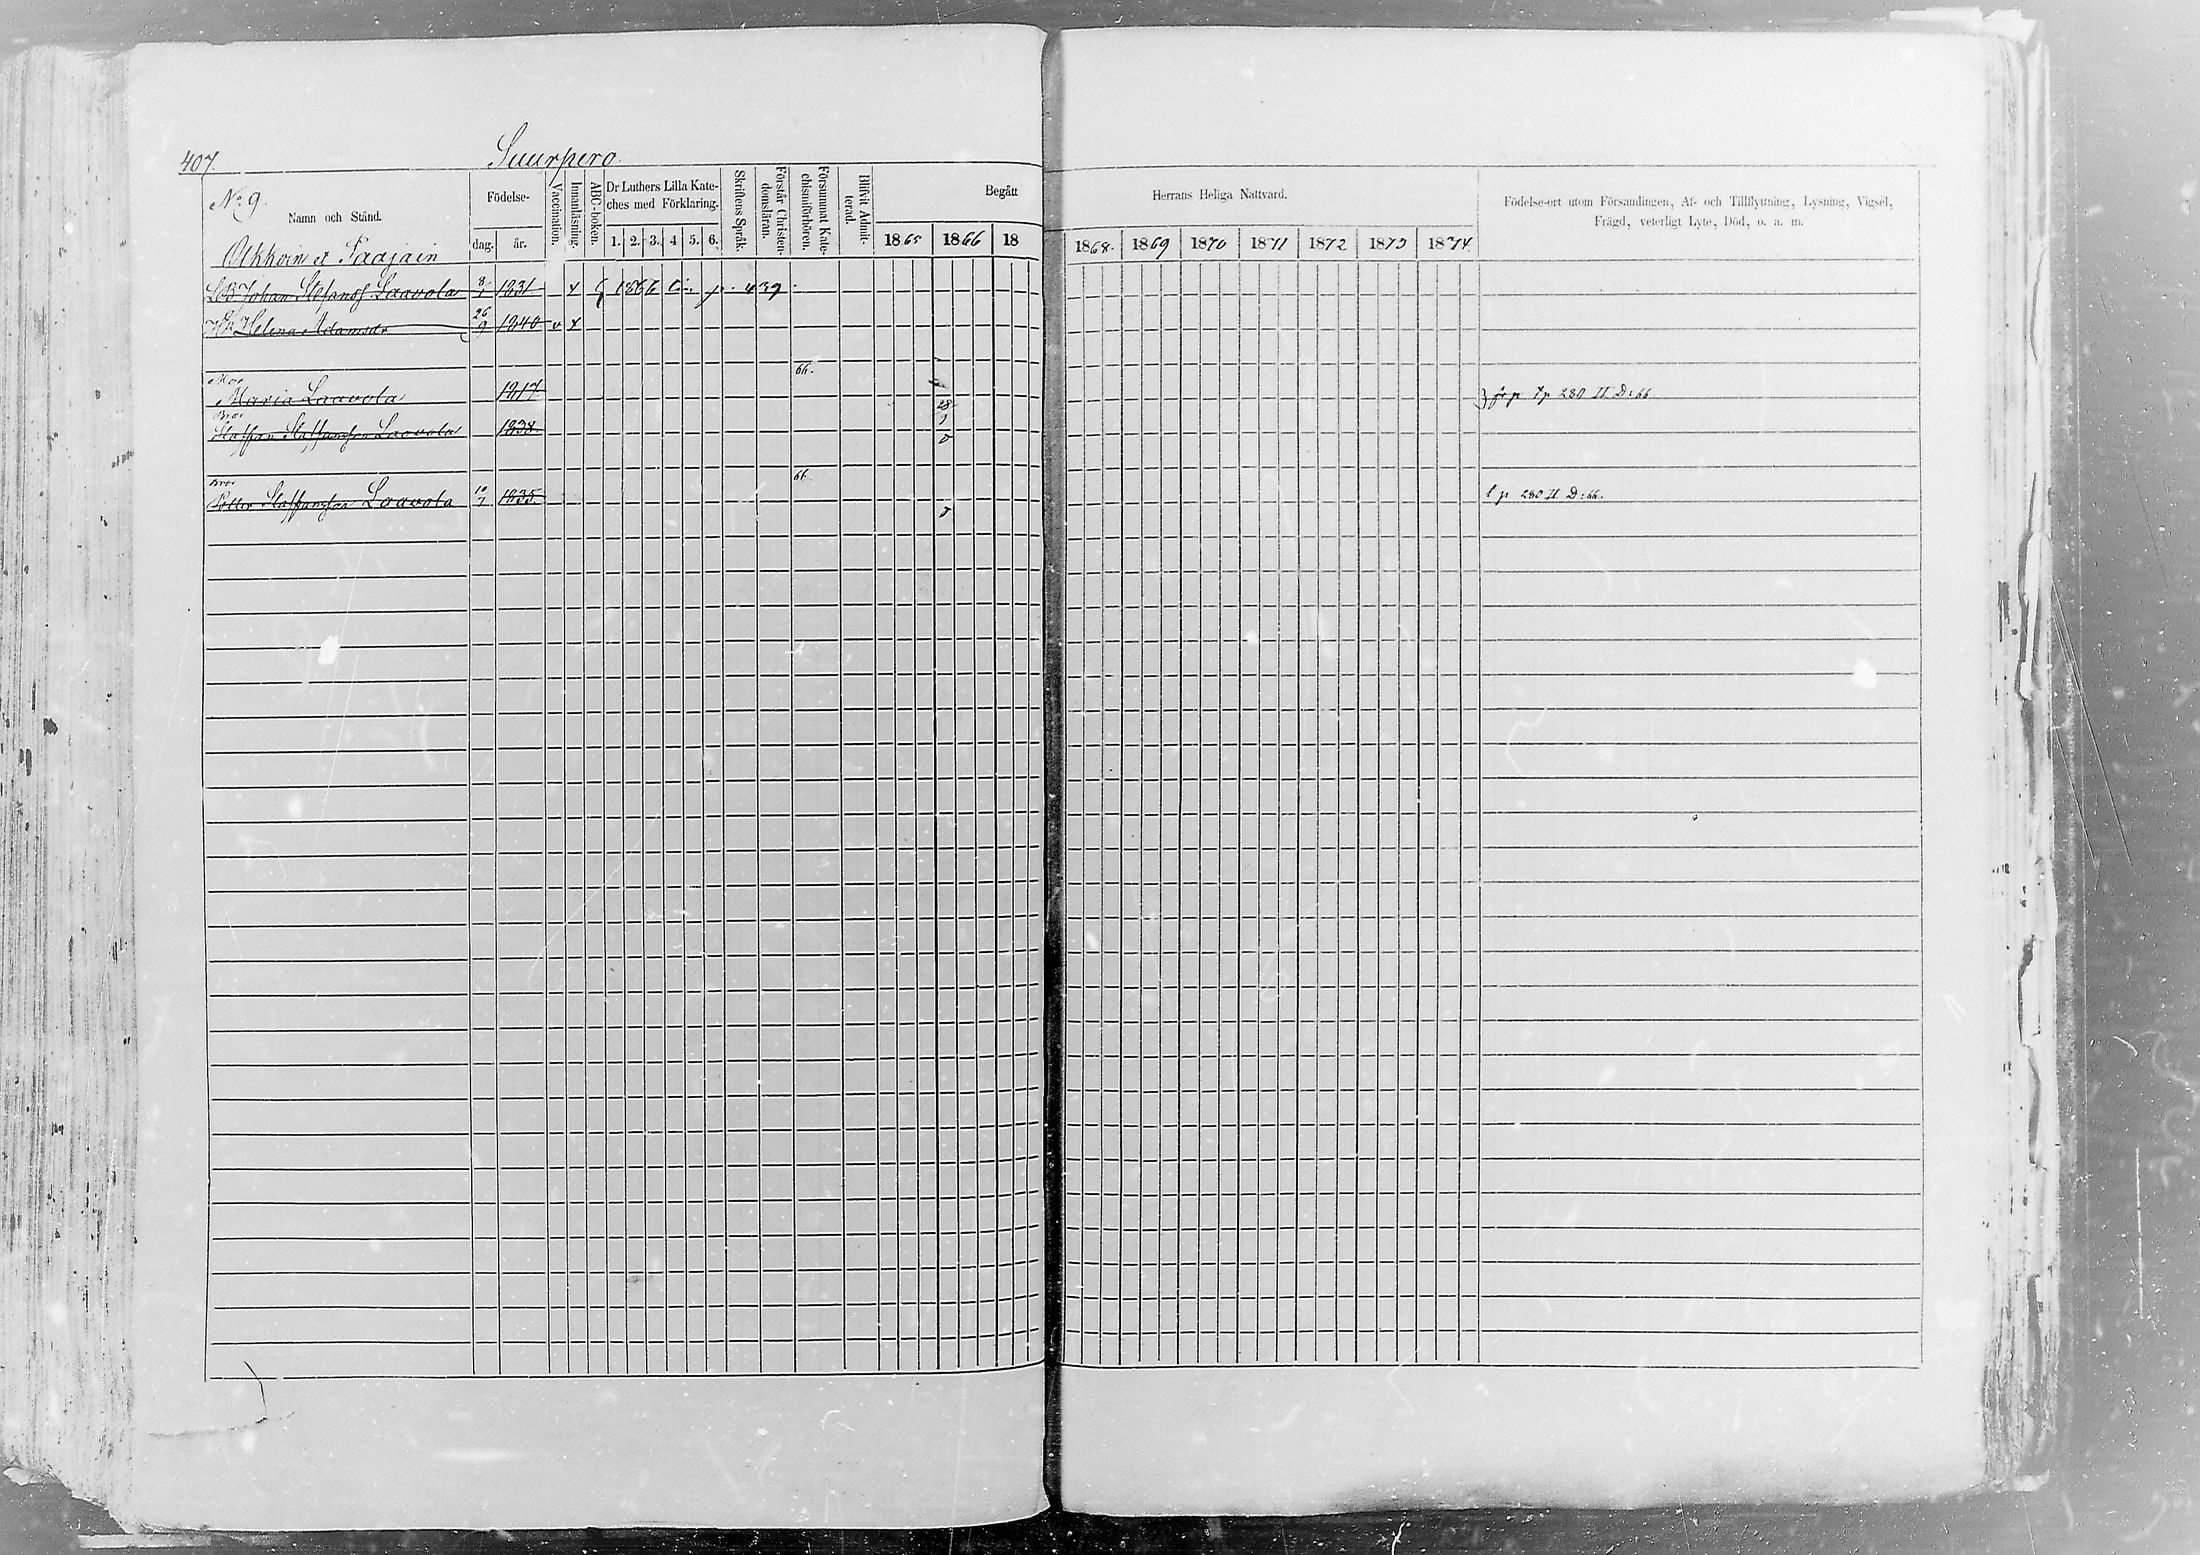 407.
Suurpero
No 9.
Namn och Stånd.
Födelse-
dag. år.
Vaccination.
Innanläsning.
ABC-boken.
Dr Luthers Lilla Kate-
ches med Förklaring.
1. 2. 3. 4 5. 6.
Skriftens Språk.
Förstår Christen-
domsläran.
Försummat Kate-
chismiförhören.
Blifvit Admit-
terad.
Begått
1865 1866 18
Herrans Heliga Nattvard.
1868. 1869 1870 1871 1872 1873 1874.
Födelse-ort utom Församlingen, Af- och Tillflyttning, Lysning, Vigsel,
Frägd, veterligt Lyte, Död, o. a. m.
Olkkoin et Paajain
Johan Stefanss Laavola 8 1831 x 1866 p. 439
Helena Adamsdr 26/9 1840 v x
66.
Mor
Maria Laavola 1817
p 280 II D: 66
Bror
Staffan Staffansson Laavola 1838.
28/9
66
Bror
Petter Staffansson Laavola 10/7 1835.
p 280 II D: 66.